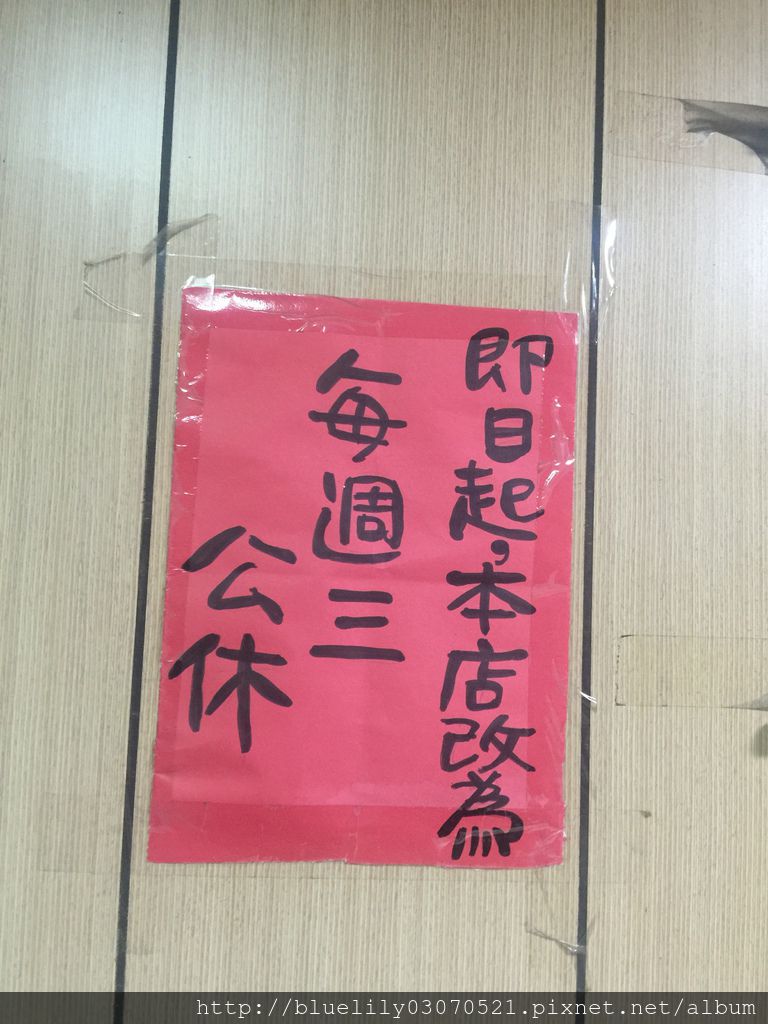 即日起,本店改為
每週三
公休
http://bluelily03070521.pixnet.net/album